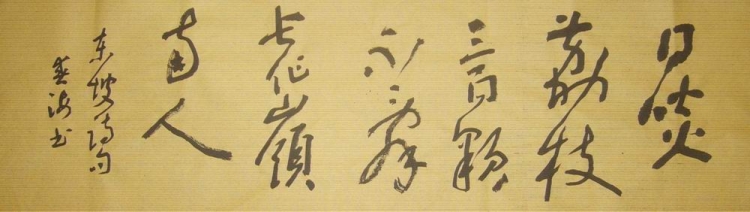 日啖
荔枝
三百颗
不辞
长作岭
南人
东坡诗句
海书